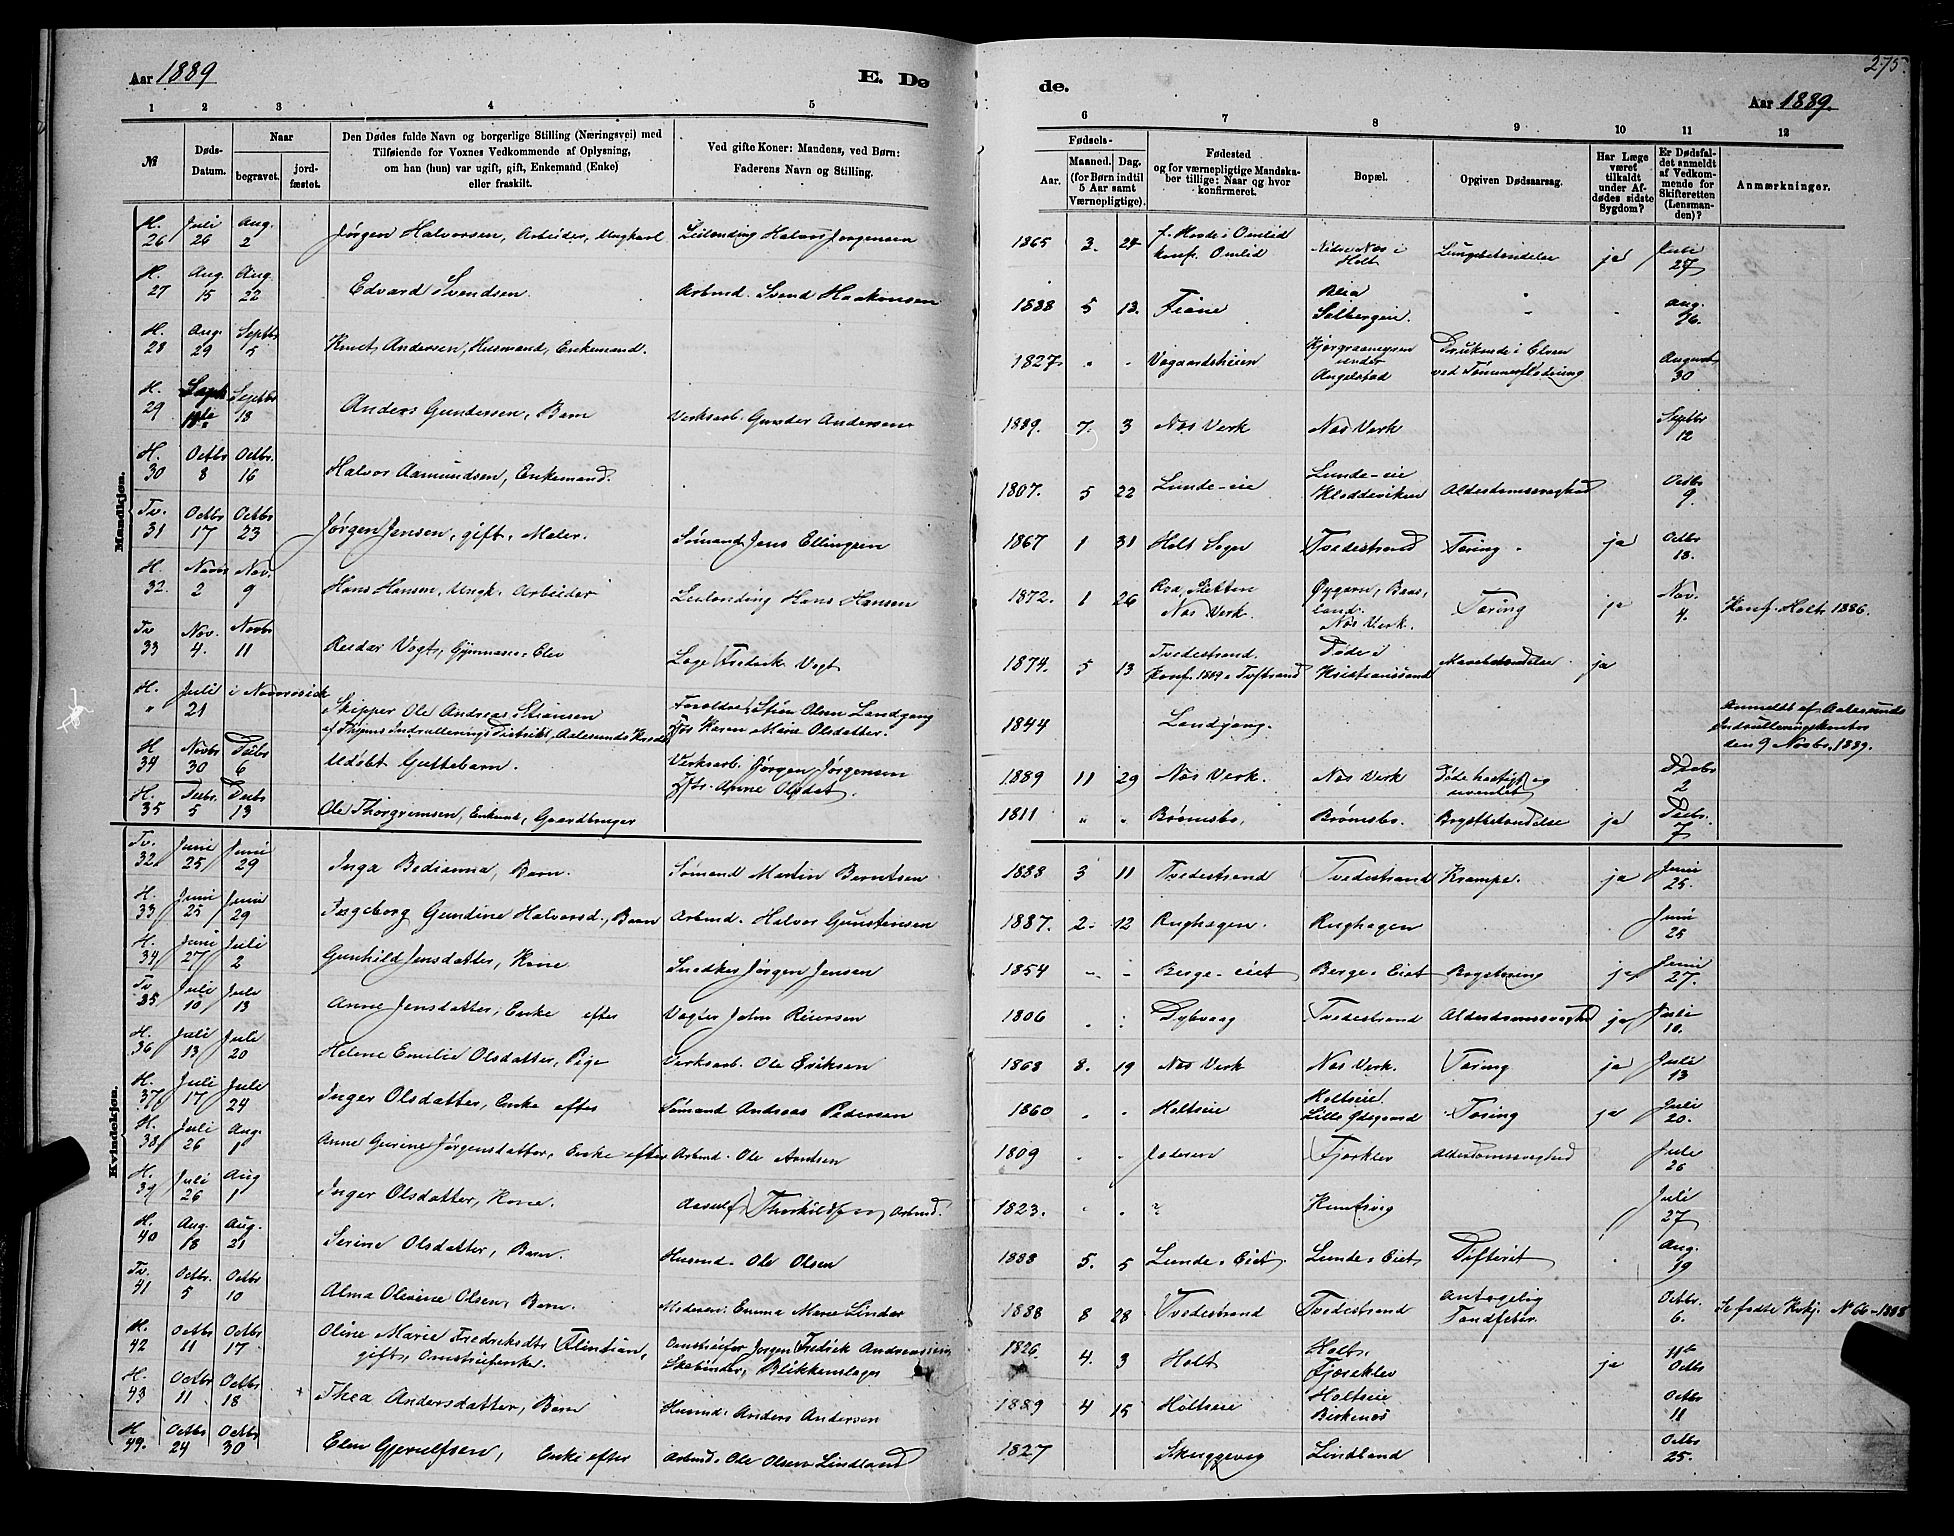 275.
Aar 1889
E. Dø
de.
Aar 1889.
1 2 3 4 5
6 7 8 9 10 11 12
№
Døds-Datum.
Naar
begravet.
jordfæstet.
Den Dødes fulde Navn og borgerlige Stilling (Næringsvei) med
Tilføiende for Voxnes Vedkommende af Oplysning,
om han (hun) var ugift, gift, Enkemand (Enke)
eller fraskilt.
Ved gifte Koner: Mandens, ved Børn:
Faderens Navn og Stilling.
Fødsels-
Aar.
Maaned. Dag.
(for Børn indtil
5 Aar samt
Værnepligtige).
Fødested
og for værnepligtige Mandskaber tillige: Naar og hvor
konfirmeret.
Bopæl.
Opgiven Dødsaarsag.
Har Læge
været
tilkaldt
under Afdødes sidste
Sygdom?
Er Dødsfaldet anmeldt
af Vedkommende for
Skifteretten
(Lensmanden)?
Anmærkninger.
Mandkjøn.
H. 26 Juli 26 Aug. 2 Jørgen Halvorsen, Arbeider, Ungkarl Leilending Halvor Jørgensen 1865 3. Omlid konf. Omlid Nidre Næs i Holt Lungebetændelse ja Juli 27
H. 27 Aug. 15 Aug. 22 Edvard Svendsen. Arbmd. Svend Haakonsen 1888 5 13. Fiane Solbergeie. " - Aug. 16.
H. 28 Aug. 29 Septbr 5 Knut Andersen, Husmand, Enkemand. 1827. " - Vegaardsheien under Angelstad Druknede i Elven ved Tømmerflødning August 30
H. 29 Sept 11te Septbr 18 Anders Gundersen, Barn Verksarb. Gunder Andersen 1889. 7. 3 Næs Verk Næs Verk Septbr 12
H. 30 Octbr 8 Octbr. 16 Halvor Aamundsen, Enkemand. 1807. 5 22 Lunde-eie Lunde-eie Alderdomssvaghed Octbr 9.
Tv. 31 Octbr 17 Octbr 23 Jørgen Jensen, gift, Maler. Sømand Jens Ellingsen 1867 1 31 Holt Sogn Tvedestrand Tæring. ja Octbr 18.
H. 32. Novbr 2 Nov. 9 Hans Hansen, Ungk. Arbeider Leilending Hans Hansen 1872. 1 26 Næs Verk. Næs Verk. Tæring ja Nov. 4. Konf. Holt 1886.
Tv 33 Nov. 4. Novbr 11 Reidar Vogt, Gymnasie-Elev Læge Fredrik Vogt 1874. 5 13 Tvedestrand. konf. 1889 Tvedestrand Døde i Kristianssand Mavebetændelse. ja
H. " Juli 21 i Novorosisk Skipper Ole Andreas Stiansen Forældre: Stian Olsen Landgang 1844 Landgang. Anmeldt af Aalesunds
af Indrulleringsdistrikt, Aalesunds Kreds Karen Marie Olsdatter. Indrulleringskontor den 9 Novbr. 1889.
H 34 Novbr 30 Decbr 6 Udøbt Guttebarn. Verksarb. Jørgen Jørgensen Anne Olsdat. 1889 11 29 Næs Verk. Næs Verk Døde hastigt og uventet Decbr 2
H. 35 Decbr. 5 Decbr 13 Ole Thorgrimsen, Enkemd, Gaardbruger 1811 " " Brømsbo, Brømsbo. Brystbetændelse ja Decbr. 7
Kvindekjøn.
Tv. 32 Juni 25 Juni 29 Inga Bedianna, Barn. Sømand Martin Berntsen 1888 3 11 Tvedestrand Tvedestrand Krampe. ja Juni 25.
H. 33 Juni 25 Juni 29 Ingeborg Gundine Halvorsd., Barn Arbmd. Halvor Gunstensen 1887. 2. 12 Rughagen. Rughagen Juni 25
H. 34 Juni 27 Juli 2 Gunhild Jensdatter, Kone Snedker Jørgen Jensen 1854 - - Berge-eiet Berge-Eiet Brysttæring ja Juni 27.
Tv 35 Juli 10 Juli 13 Anne Jensdatter, Enke efter Vægter John Reiersen 1806 Dybvaag Tvedestrand Alderdomssvaghed ja Juli 10.
H. 36 Juli 13 Juli 20 Helene Emilie Olsdatter, Pige Verksarb. Ole Eriksen 1868 8. 19 Næs Verk Næs Verk. Tæring ja Juli 13
H. 37 Juli 17 Juli 24 Inger Olsdatter, Enke efter Sømand Andreas Pedersen 1860 " " Holtseie Holtseie Lille Ødegaard Tæring ja Juli 20.
H. 38 Juli 26 Aug. 1 Anne Gurine Jørgensdatter, Enke efter Arbmd. Ole Amdsen 1809 " " Jæderen Fjærklev Alderdomssvaghed Juli 26
H. 39 Juli 26 Aug 1 Inger Olsdatter, Kone. Aasulf Thorkildsen, Arbmd. 1823. " " ? Kvastad Juli 27
H. 40 Aug. 18 Aug. 21 Serine Olsdatter, Barn. Husmd. Ole Olsen 1888 5. 5 Lunde-Eiet. Lunde-Eiet Difterit Aug. 19
Tv. 41 Octbr. 5 Octbr 10 Alma Olevine Olsen, Barn. Moderen: Emma Marie Linder 1888 8 28 Tvedestrand Tvedestrand antagelig Tandfeber Octbr. 6. Se fødte Kvkj. № 66-1888
H. 42 Octbr 11 Octbr 17 Oline Marie Fredriksdt. gift, Omstreiferske. Omstreifer Jørgen Fredrik Andreassen Skobinder, Blikkenslager 1826. 4. 3 Holt Holt. Fjærklev ja 11te Octbr
H. 43 Octbr 11 Octbr 18 Thea Andersdatter, Barn Husmd. Anders Andersen 1889 4 15 Holtseie Holtseie Birkenes Octbr 11
H 44. Octbr 24 Octbr 30 Elen Gjerulfsen, Enke efter Arbmd. Ole Olsen Lindland 1827 Skuggevig Lindland Octbr 25.